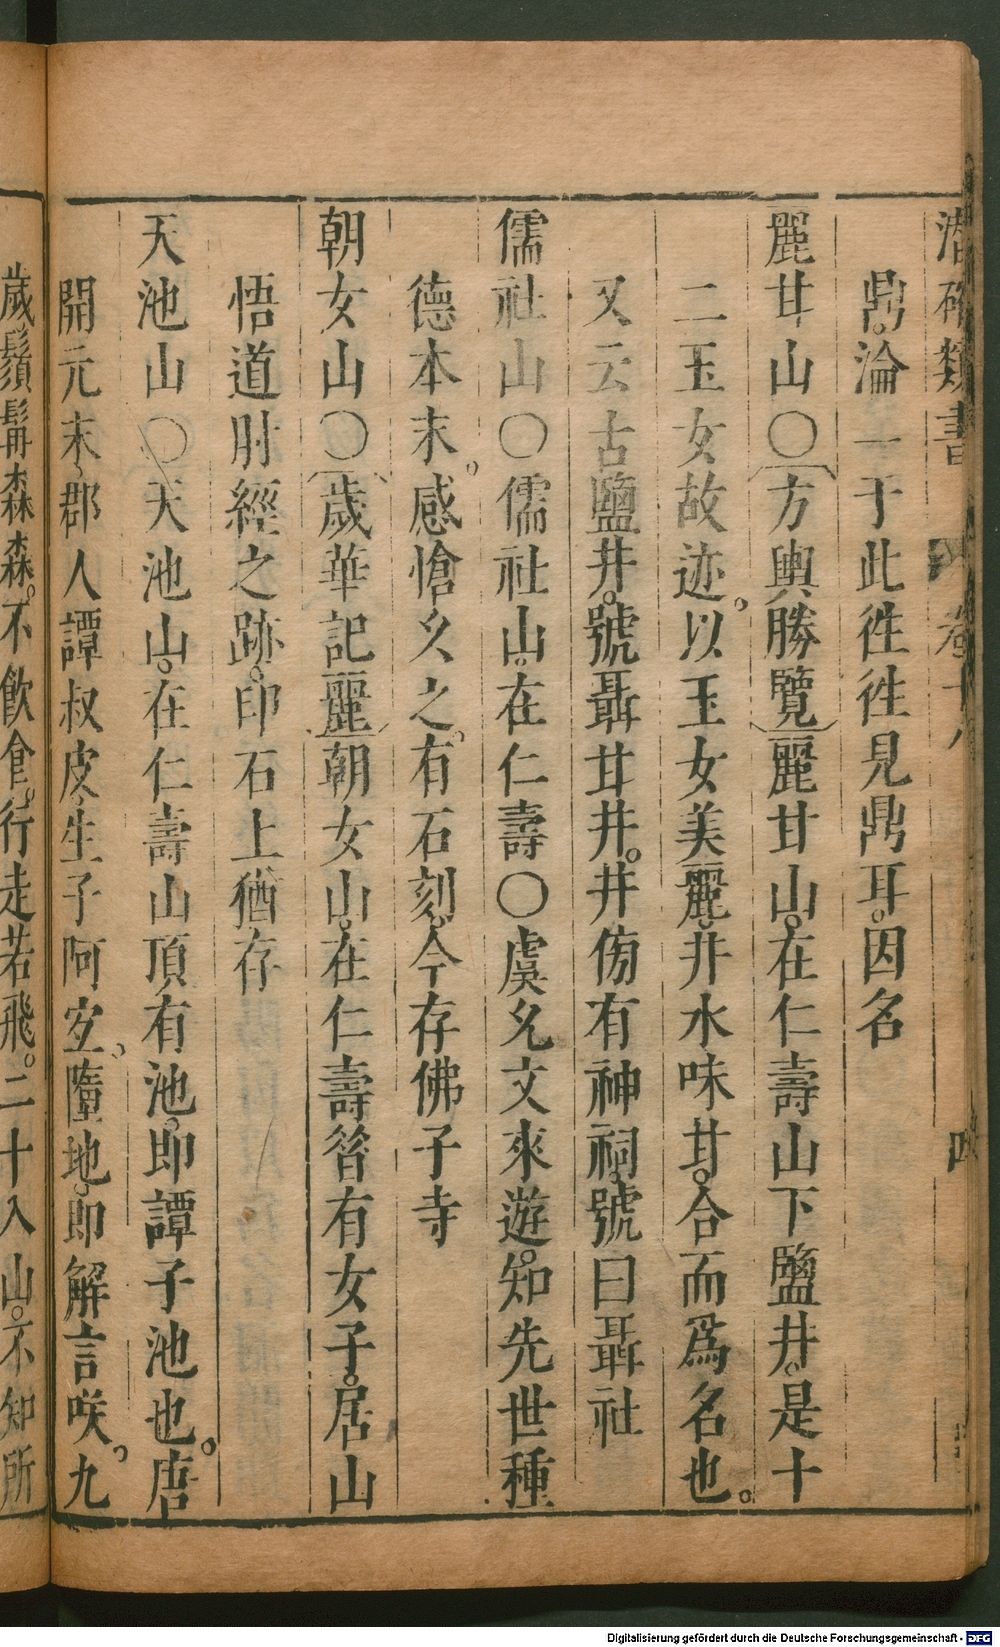 潛確類書 卷十八 四
鼎淪于此徃徃見鼎耳。因名
麗甘山〇方輿勝覽麗甘山。在仁壽山下鹽井。是十
二玉女故迹。以玉女美麗。井水味甘。合而爲名也。
又云古鹽井。號聶甘井。井傍有神祠。號曰聶社
儒社山〇儒社山。在仁壽〇虞允文來遊。知先世種
德本末。感愴久之。有石刻。今存佛子寺
朝女山〇歲華記麗朝女山。在仁壽昝有女子。居山
悟道肘經之跡。印石上猶存
天池山〇天池山。在仁壽山頂有池。即譚子池也。唐
開元末、郡人譚叔皮、生子阿宐、墮地。即解言咲。九
歲鬚髯森森。不飲食。行走若飛。二十入山。不知所
Digitalisierung gefördert durch die Deutsche Forschungsgemeinschaft - DFG